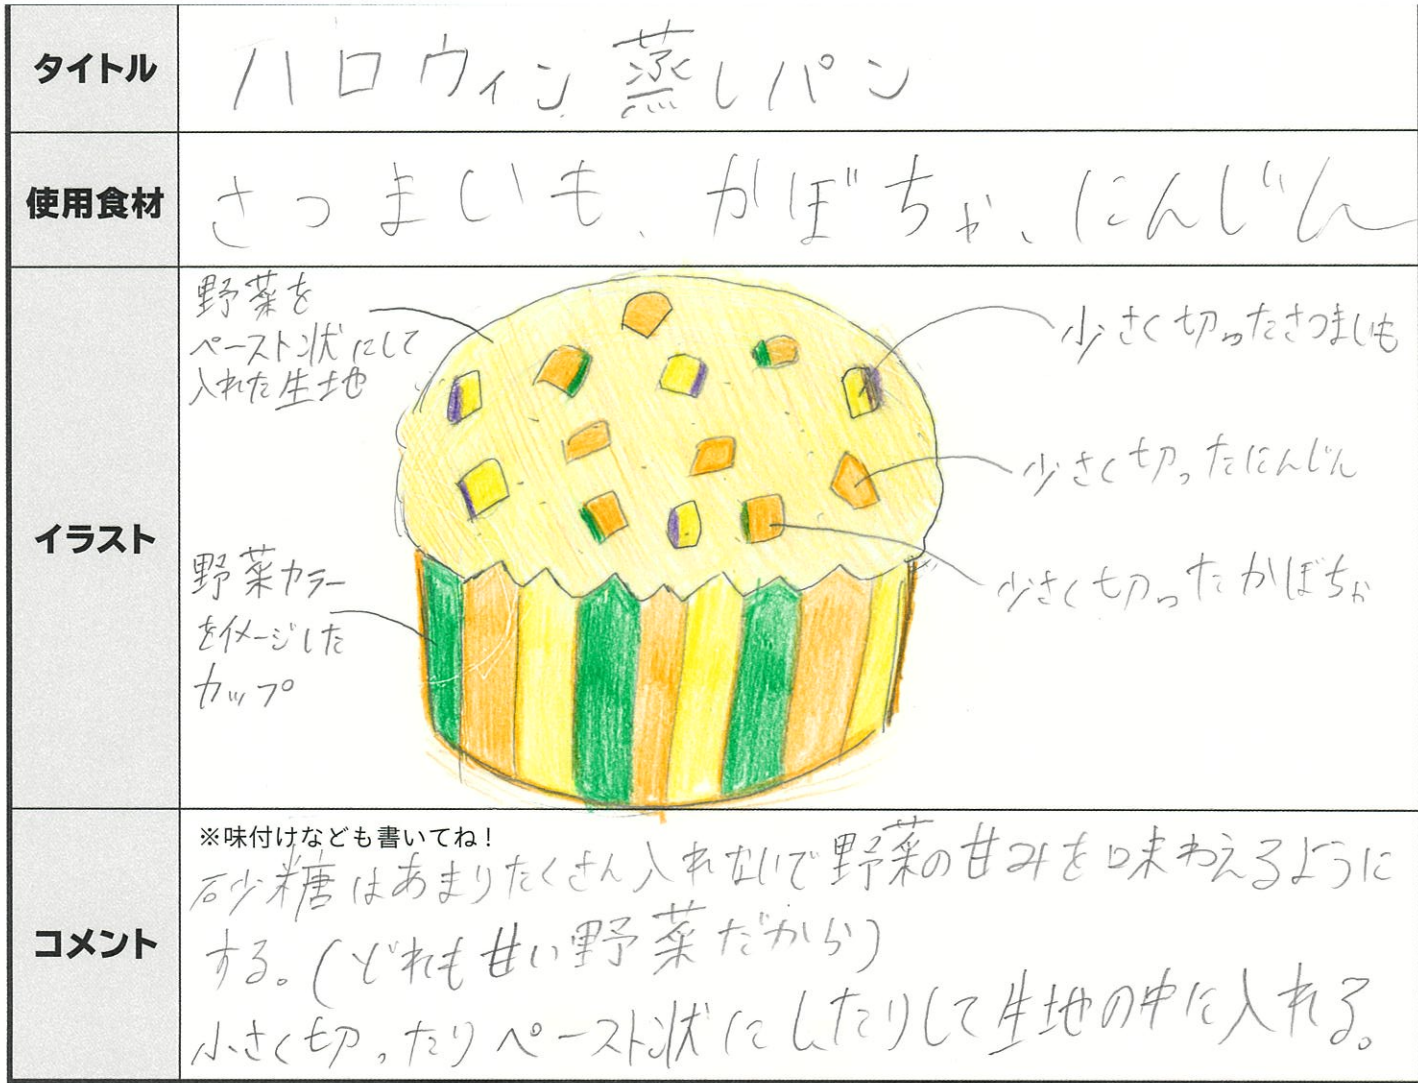 タイトル
ハロウィン蒸しパン
使用食材
さつまいも、かぼちゃ、にんじん
イラスト
野菜を
ペースト状にして
入れた生地
小さく切ったさつまいも
小さく切ったにんじん
小さく切ったかぼちゃ
野菜カラー
をイメージした
カップ
コメント
※味付けなども書いてね！
砂糖はあまりたくさん入れないで野菜の甘みを味わえるように
する。(どれも甘い野菜だから)
小さく切ったりペースト状にしたりして生地の中に入れる。